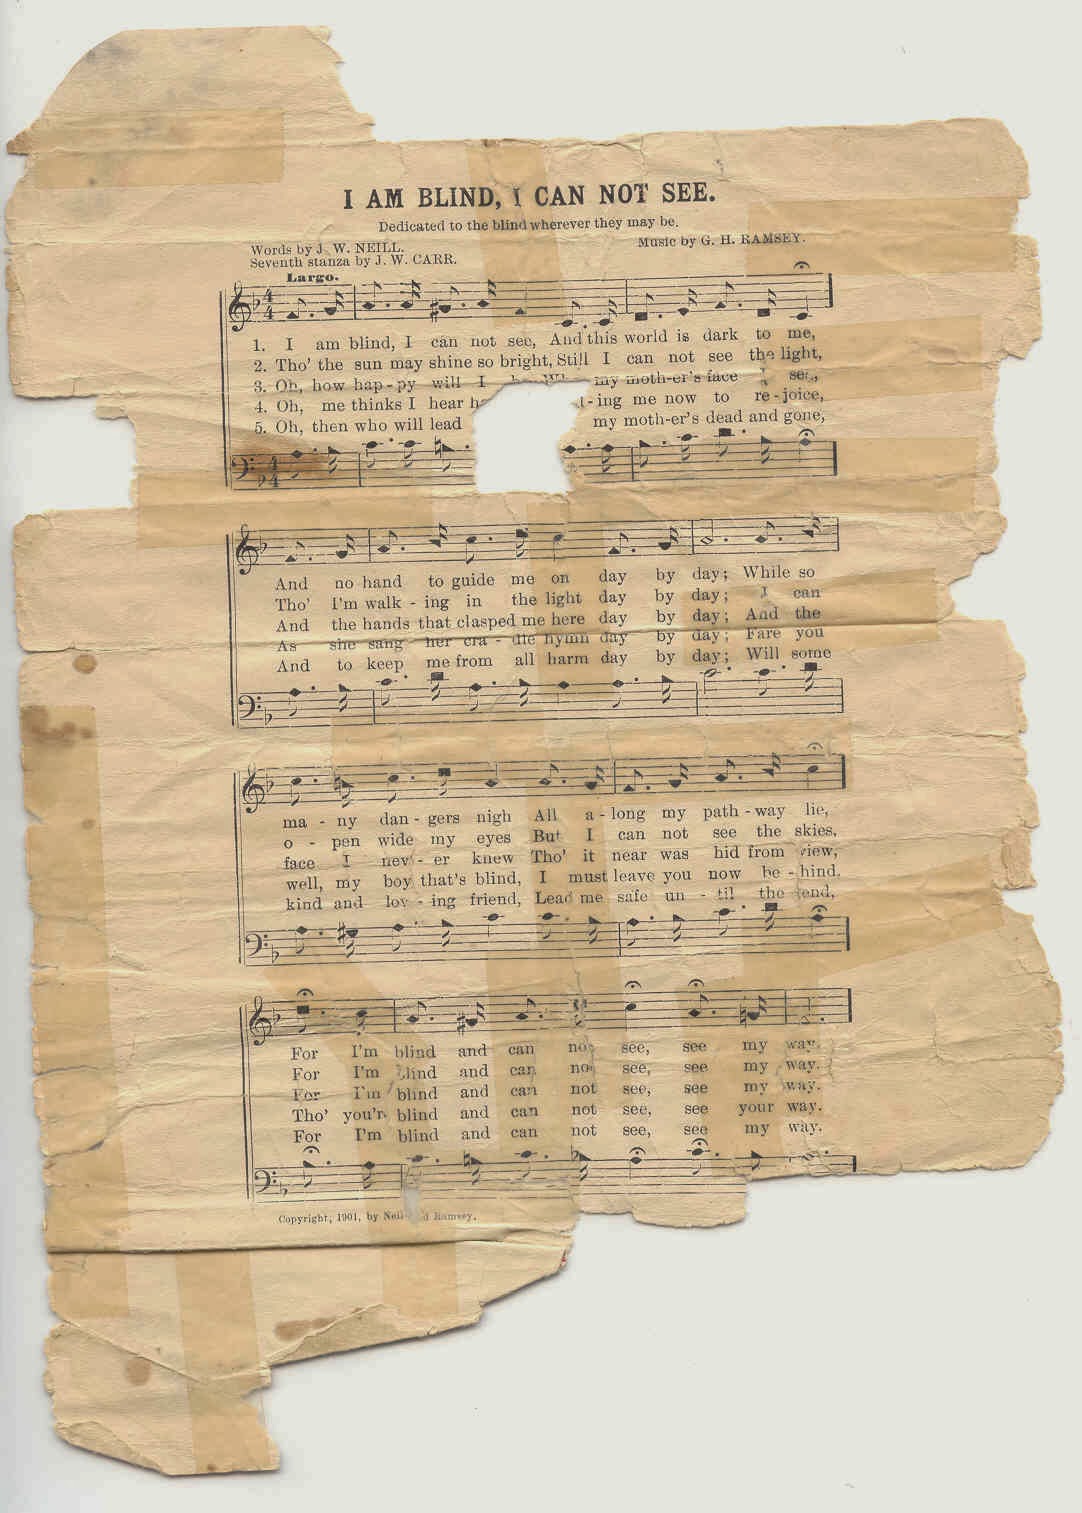 I AM BLIND, I CAN NOT SEE.
Dedicated to the blind wherever they may be.
Words by J. W. NEILL.
Music by G. H. RAMSEY.
Seventh stanza by J. W. CARR.
Largo.
1. I am blind, I can not see, And this world is dark to me,
2. Tho' the sun may shine so bright, Still I can not see the light,
3. Oh, how hap - py will I my moth-er's face I see,
4. Oh, me thinks I hear me now to re - joice,
5. Oh, then who will lead my moth-er's dead and gone,
And no hand to guide me on day by day; While so
Tho' I'm walk - ing in the light day by day; I can
And the hands that clasped me here day by day; And the
As she sang her cra - dle hymn day by day; Fare you
And to keep me from all harm day by day; Will some
ma - ny dan - gers nigh All a - long my path - way lie,
o - pen wide my eyes But I can not see the skies,
face I nev - er knew Tho' it near was hid from view,
well, my boy that's blind, I must leave you now be - hind,
kind and lov - ing friend, Lead me safe un - til the end,
For I'm blind and can not see, see my way.
For I'm blind and can not see, see my way.
For I'm blind and can not see, see my way.
Tho' you're blind and can not see, see your way.
For I'm blind and can not see, see my way.
Copyright, 1901, by Neill and Ramsey.